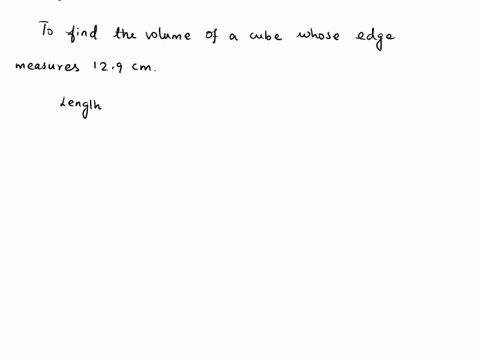 To find the volume of a cube whose edge
measures 12.9 cm.
Length